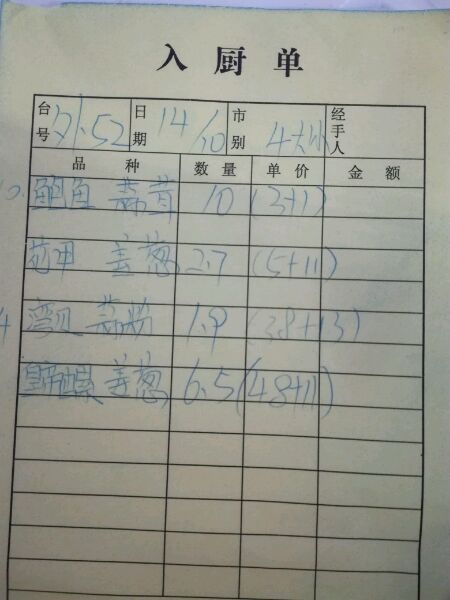 入厨单
台号 外52 日期 14/10 市别 4大 经手人
品种 数量 单价 金额
10. 鲍鱼 蒜茸 10 (3+1)
花甲 姜葱 2.7 (5+11)
4 弯贝 蒜粉 1.9 (38+13)
螺 姜葱 6.5 (48+11)